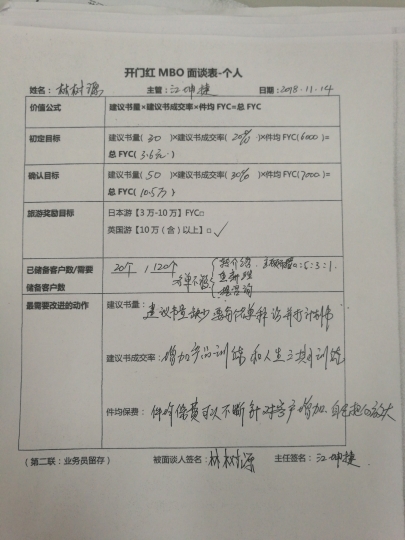 开门红 MBO 面谈表-个人
姓名：林树源 主管：江坤捷 日期：2018.11.14
价值公式 建议书量×建议书成交率×件均FYC=总 FYC
初定目标 建议书量( 30 )×建议书成交率( 20% )×件均 FYC(6000)=
总 FYC( 3.6万 )
确认目标 建议书量( 50 )×建议书成交率( 30% )×件均 FYC(7000)=
总 FYC( 10.5万 )
旅游奖励目标 日本游【3 万-10 万】FYC□
英国游【10 万（含）以上】□ ✓
已储备客户数/需要储备客户数 20个 / 120个 名单不够 转介绍 :5:3:1
最需要改进的动作 建议书量：
建议书量缺少 要有做单 并打计划书
建议书成交率：增加产品训练 和人生三 训练
件均保费：件均保费可以不断针对客户增加，自己把 放大
（第二联：业务员留存） 被面谈人签名：林树源 主任签名：江坤捷